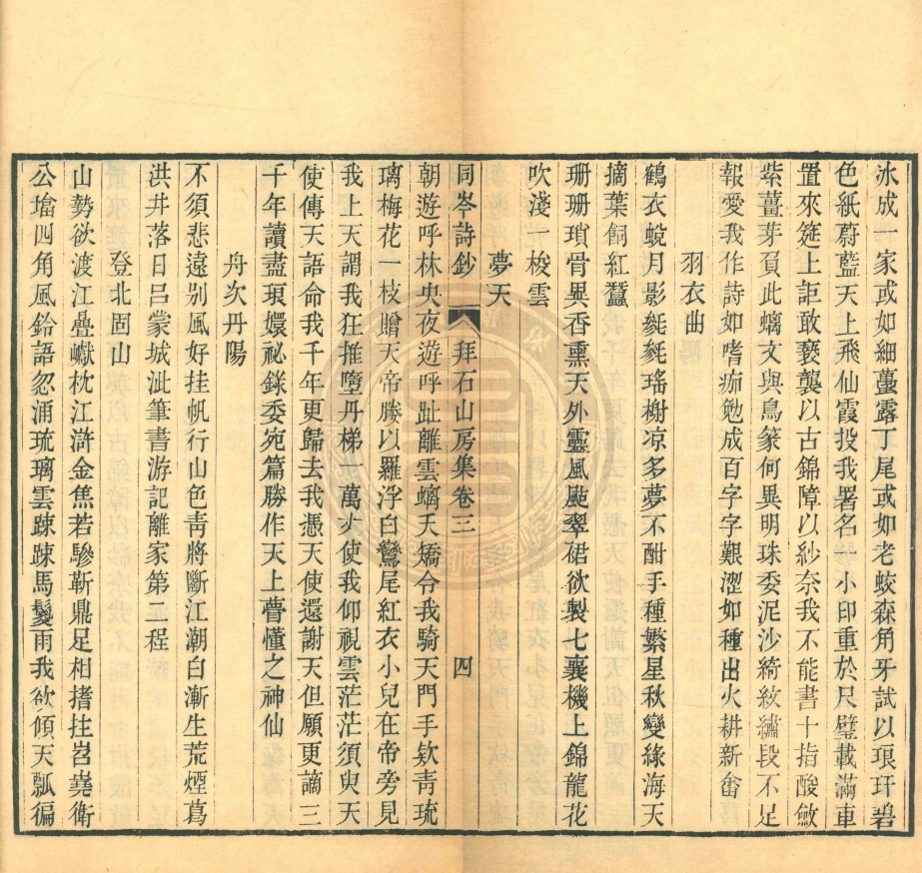 冰成一家或如細蠆露丁尾或如老蛟森角牙試以琅玕碧
色紙蔚藍天上飛仙霞投我署名一小印重於尺璧載滿車
置來筵上詎敢褻襲以古錦障以紗奈我不能書十指酸斂
紫薑芽頁此螭文與鳥篆何異明珠委泥沙綺紋繡段不足
報愛我作詩如嗜痂勉成百字字艱澀如種出火耕新畬
羽衣曲
鶴衣蛻月影毿毿瑤榭凉多夢不酣手種繁星秋變綠海天
摘葉飼紅蠶
珊珊瑣骨異香熏天外靈風颭翠裙欲製七襄機上錦龍花
吹淺一梭雲
夢天
同岑詩鈔
拜石山房集卷三
四
朝遊呼林央夜遊呼趾離雲螭夭矯令我騎天門手欵靑琉
璃梅花一枝贈天帝媵以羅浮白鸞尾紅衣小兒在帝旁見
我上天謂我狂推墮丹梯一萬丈使我仰視雲茫茫須臾天
使傳天語命我千年更歸去我憑天使還謝天但願更謫三
千年讀盡琅嬛祕錄委宛篇勝作天上瞢懂之神仙
舟次丹陽
不須悲遠別風好挂帆行山色靑將斷江潮白漸生荒煙蔦
洪井落日呂蒙城泚筆書游記離家第三程
登北固山
山勢欲渡江疊巘枕江滸金焦若驂靳鼎足相搘拄岧嶤衛
公墖四角風鈴語忽涌琉璃雲踈踈馬鬉雨我欲傾天瓢徧